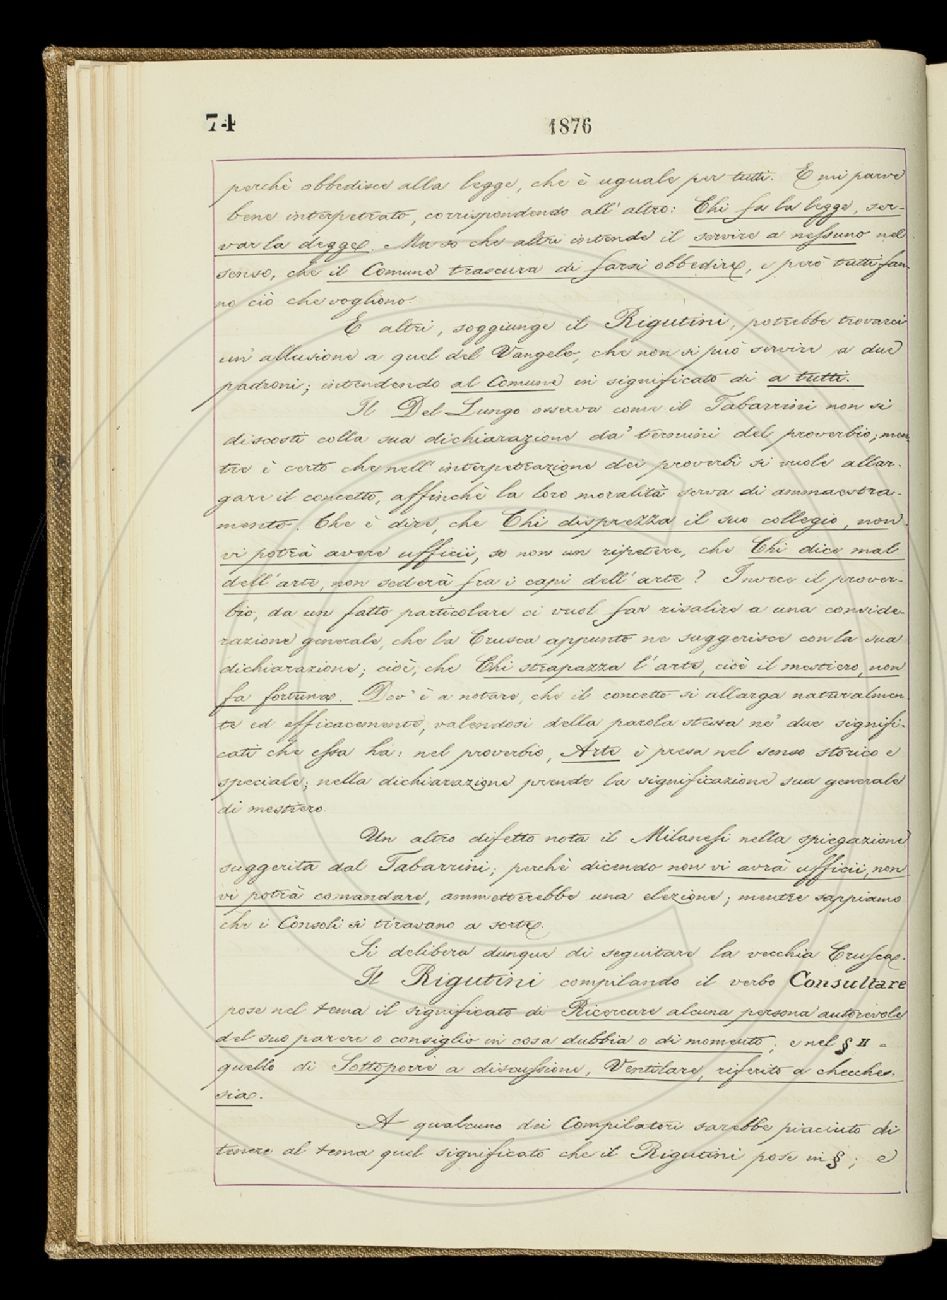 74
1876
perchè obbedisce alla legge, che è uguale per tutti. E mi parve
bene interpetrato, corrispondendo all'altro: Chi fa la legge, ser-
var la degge. Ma so che altri intende il servire a nessuno nel
senso, che il Comune trascura di farsi obbedire, e però tutti fan-
no ciò che vogliono.
E altri, soggiunge il Rigutini, potrebbe trovarci
un'allusione a quel del Vangelo, che non si può servire a due
padroni; intendendo al Comune in significato di a tutti.
Il Del Lungo osserva come il Tabarrini non si
discosti colla sua dichiarazione da' termini del proverbio; men-
tre è certo che nell'interpetrazione dei proverbi si vuole allar-
gare il concetto, affinchè la loro moralità serva di ammaestra-
mento. Che è dire, che Chi disprezza il suo collegio, non
vi potrà avere ufficii, se non un ripetere, che Chi dice mal
dell'arte, non sederà fra i capi dell'arte? Invece il prover-
bio, da un fatto particolare ci vuol far risalire a una conside-
razione generale, che la Crusca appunto ne suggerisce con la sua
dichiarazione; cioè, che Chi strapazza l'arte, cioè il mestiero, non
fa fortuna. Deo' è a notare, che il concetto si allarga naturalmen-
te ed efficacemente, valendosi della parola stessa ne' due signifi-
cati che essa ha: nel proverbio, Arte è presa nel senso storico e
speciale; nella dichiarazione prende la significazione sua generale
di mestiero.
Un altro difetto nota il Milanesi nella spiegazione
suggerita dal Tabarrini; perchè dicendo non vi avrà ufficii, non
vi potrà comandare, ammetterebbe una elezione; mentre sappiamo
che i Consoli si tiravano a sorte.
Si delibera dunque di seguitare la vecchia Crusca.
Il Rigutini compilando il verbo Consultare
pose nel tema il significato di Ricercare alcuna persona autorevole
del suo parere o consiglio in cosa dubbia o di momento; e nel § II
quello di Sottoporre a discussione, Ventilare, riferito a checches-
sia.
A qualcuno dei Compilatori sarebbe piaciuto di
tenere al tema quel significato che il Rigutini pose in §; e